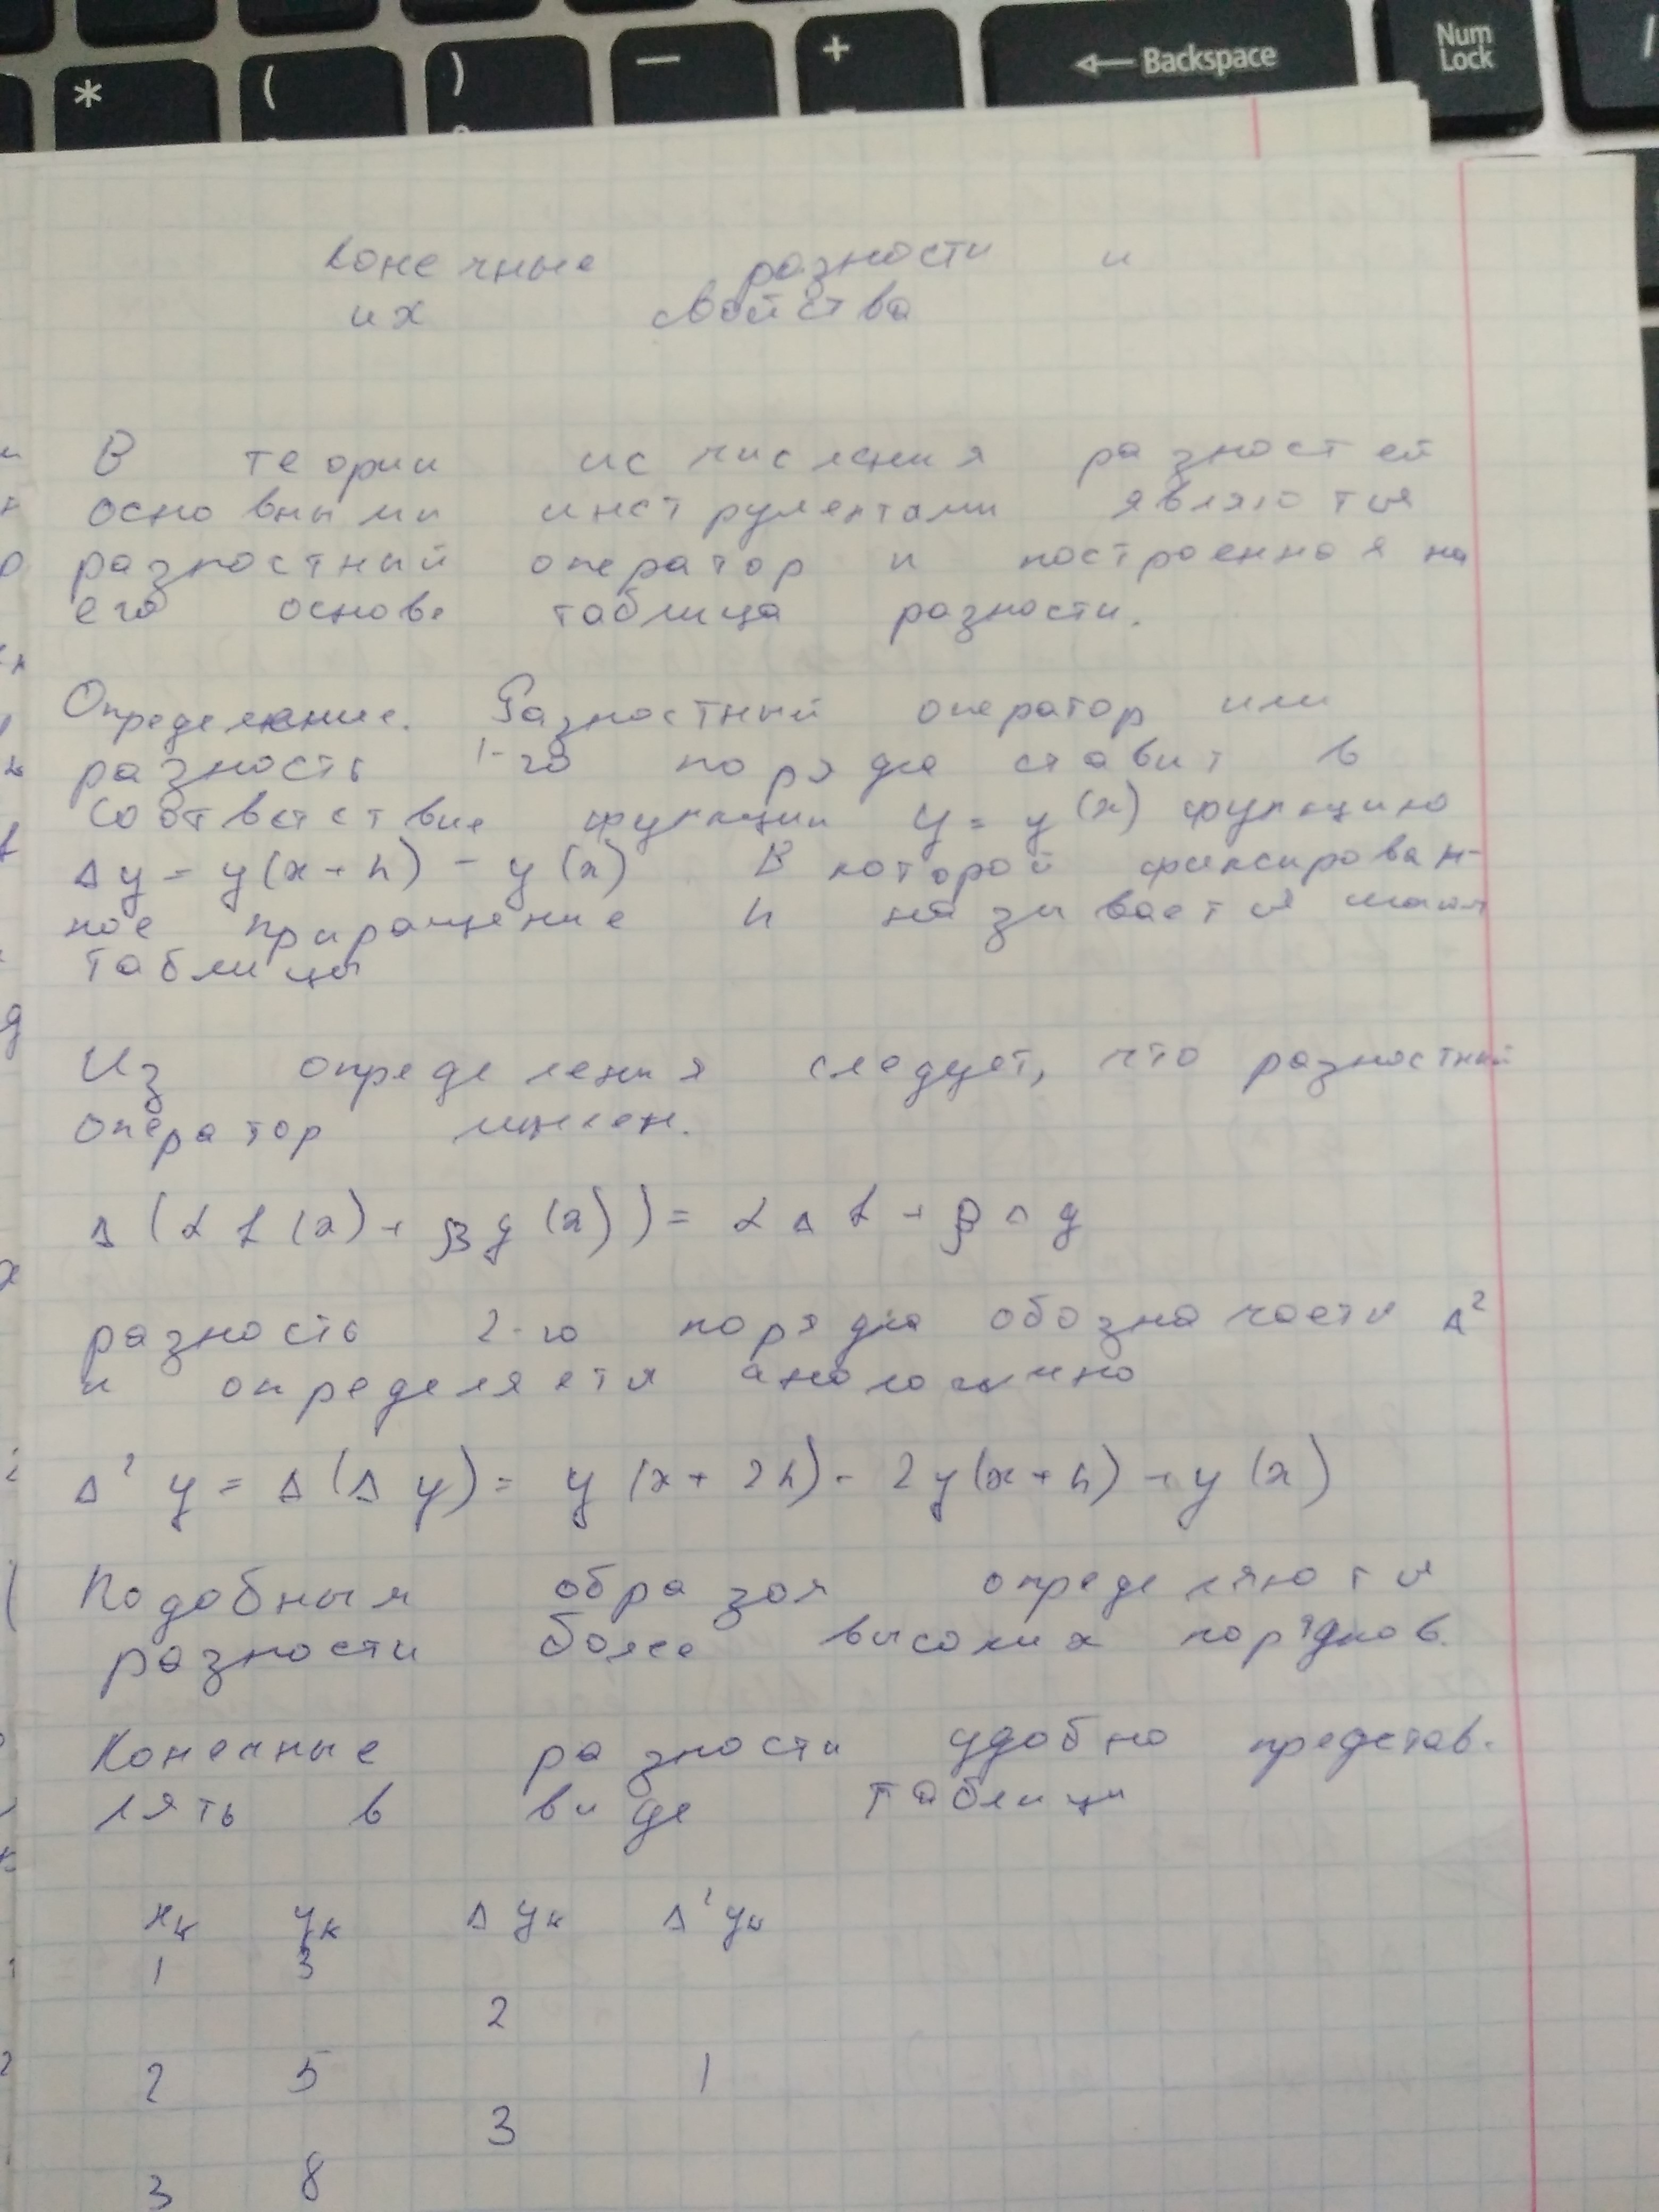 *
(
)
—
+
← Backspace
Num
Lock
/
Конечные разности и
их свойства
В теории исчисления разностей
основными инструментами являются
разностный оператор и построенная на
его основе таблица разности.
Определение. Разностный оператор или
разность 1-го порядка ставит в
соответствие функции y = y(x) функцию
Δy = y(x+h) - y(x) В которой фиксирован-
ное приращение h называется шагом
таблицы
Из определения следует, что разностный
оператор линеен.
Δ(αf(x) + βg(x)) = αΔf + βΔg
разность 2-го порядка обозначается Δ²
и определяется аналогично
Δ²y = Δ(Δy) = y(x+2h) - 2y(x+h) + y(x)
Подобным образом определяются
разности более высоких порядков.
Конечные разности удобно представ-
лять в виде таблицы
xₖ yₖ Δyₖ Δ²yₖ
1 3
2
2 5 1
3
3 8